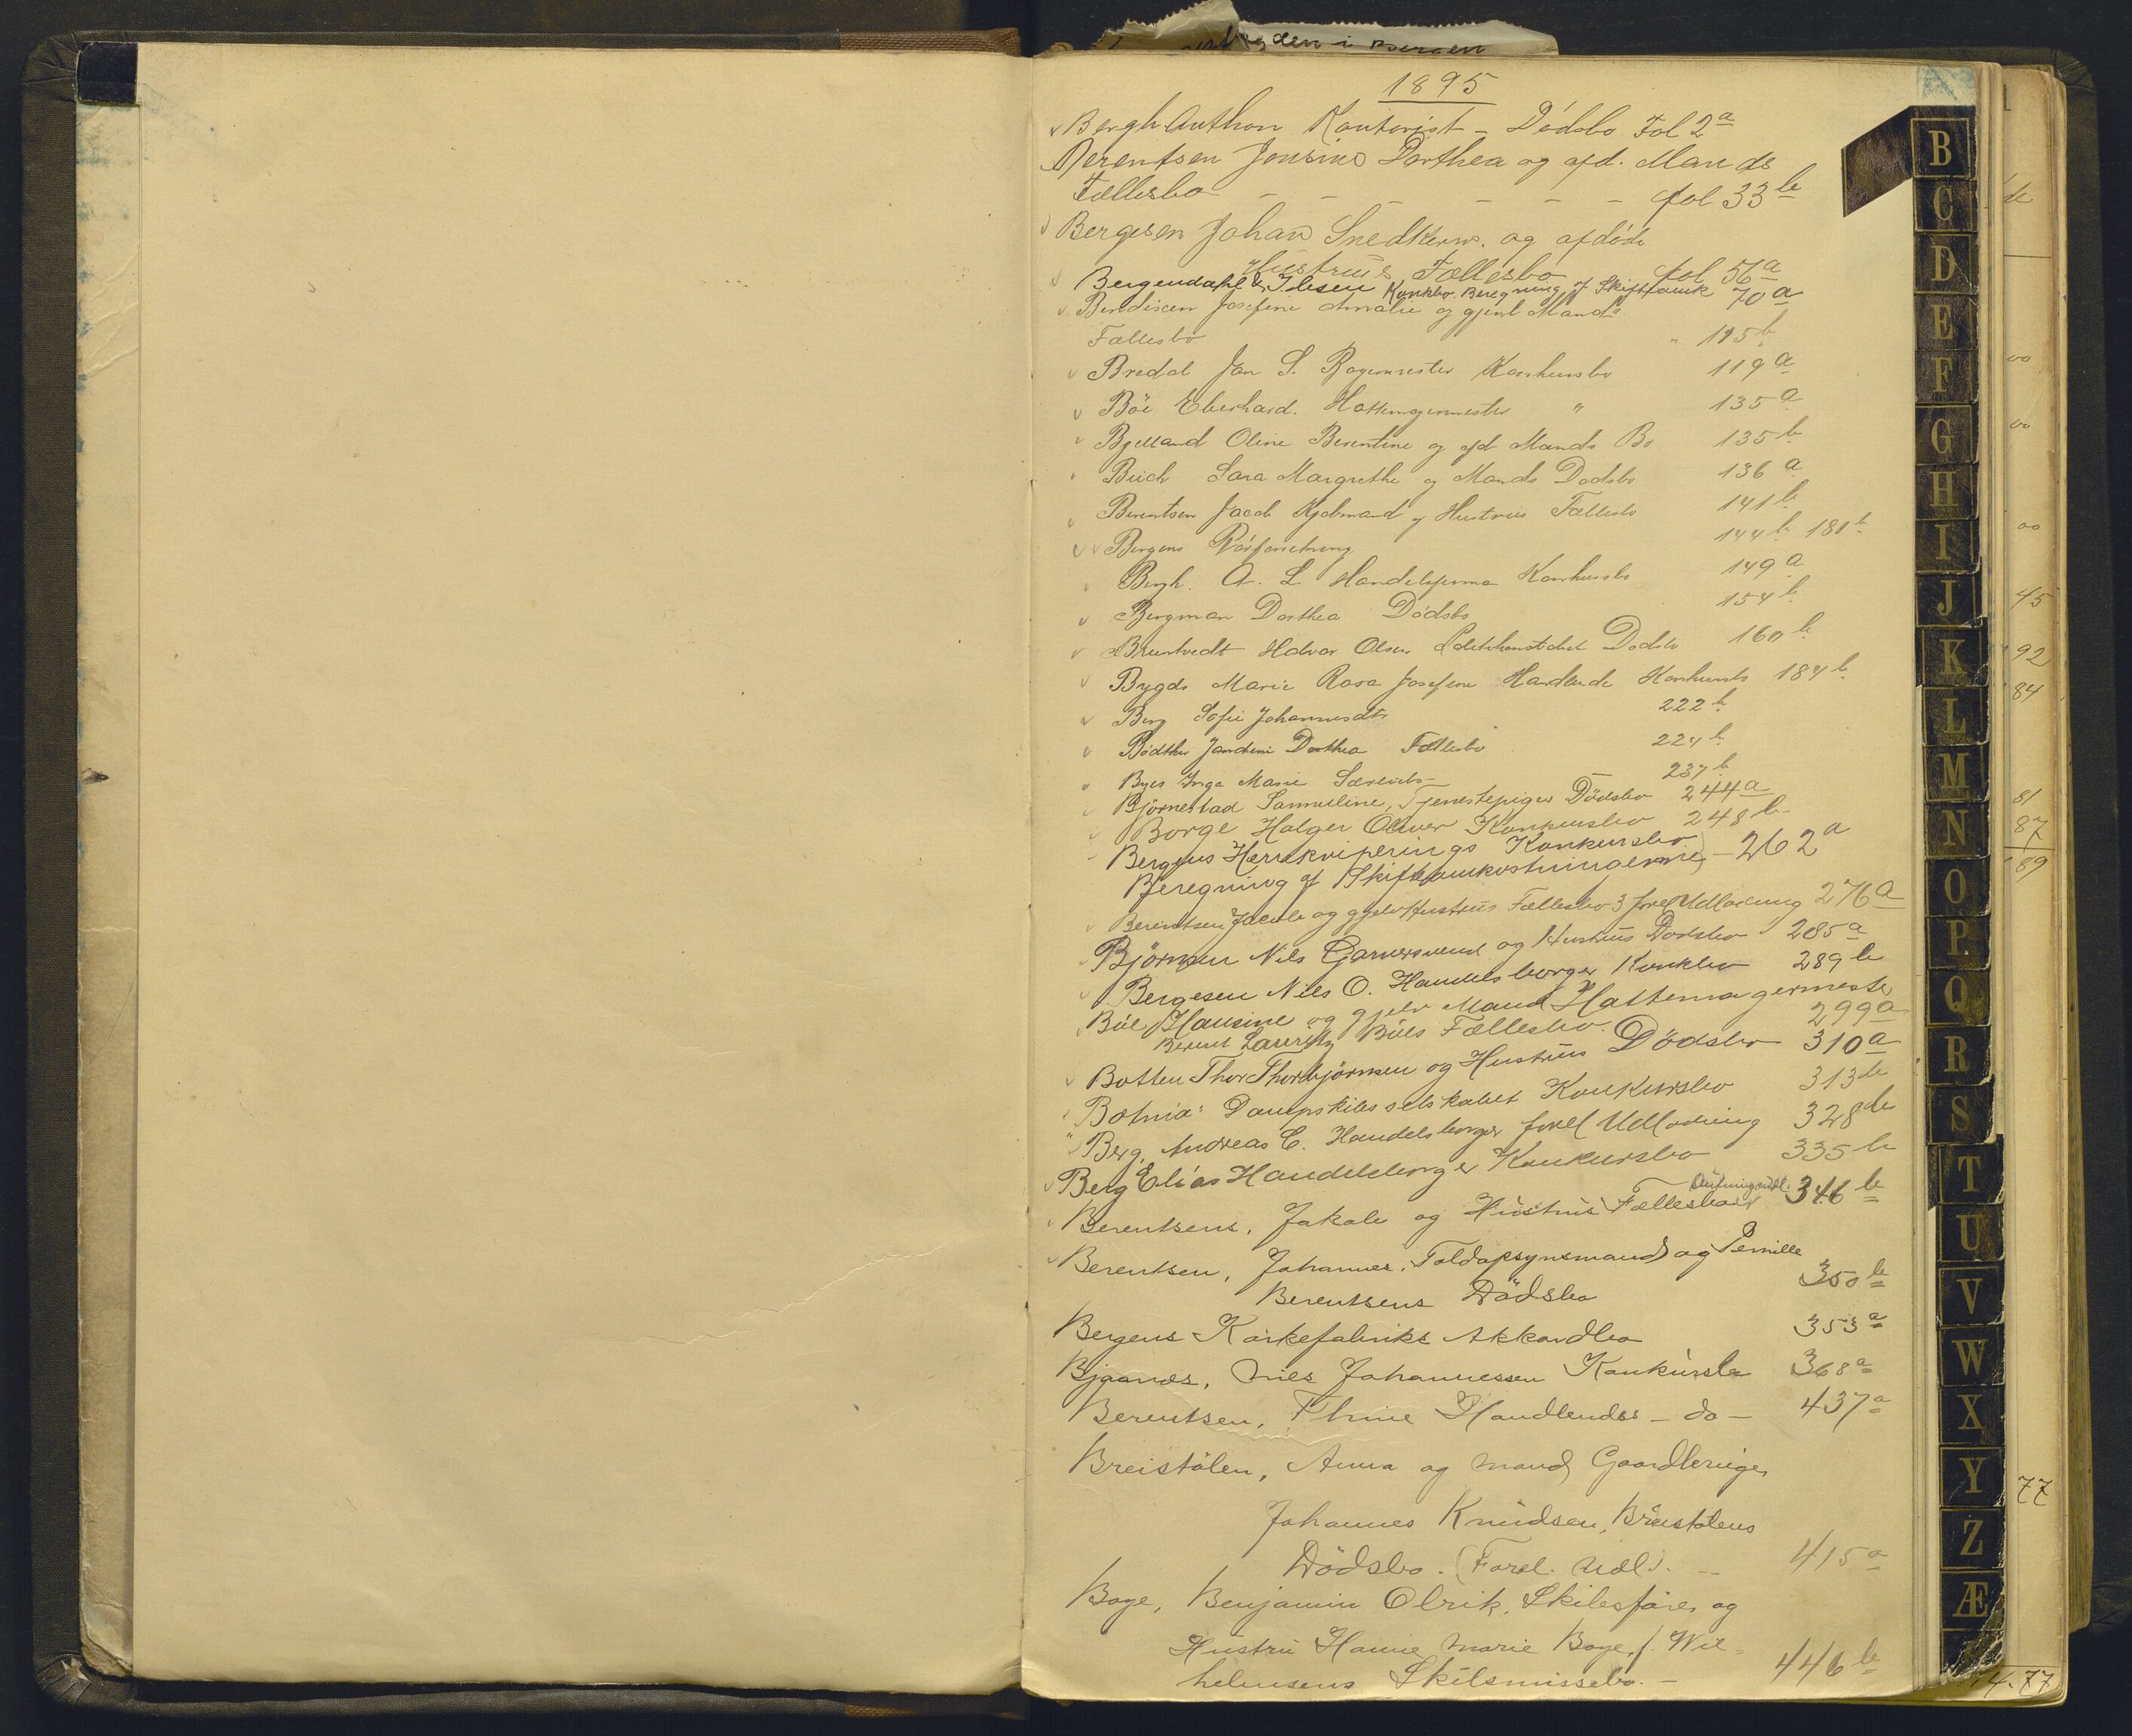 1895
Bergh Anthon Kontorist - Dødsbo Fol 2a
Berentsen Jonsine Dorthea og afd. Mands
Fællesbo - - - - - - fol 33b
Bergesen Johan Snedkerm. og afdøde
Hustrues Fællesbo fol 56a
Bergendahl & Ilesen Konkbo. Beregning af Skifteomk 70a
Bendixen Josefine Amalie og gjenl Mands
Fællesbo " 115b
Bredal Jan S. Bagermester Konkursbo 119a
Böe Eberhard. Hattemagermester " 135a
Bjelland Oline Berentine og afd Mands Bo 135b
Buch Sara Margrethe og Mands Dødsbo 136a
Berentsen Jacob Kjøbmand og Hustrus Fællesbo 141b
Bergens 144b 181b
Bergh. A. L. Handelsfirma Konkursbo 149a
Bergman Dorthea Dødsbo 154b
Halvor Olsen Dødsbo
Bygdø Marie Rosa Josefine Handlende Konkursbo 184b
Berg Sofie Johannesdtr 222b
Bødtker Dorthea Fællesbo 224b
Byes Inga Marie 237b
Bjørnestad Samueline, Tjenestepiges Dødsbo 244a
Borge Holger Oliver Konkursbo 248b
Bergens Herrekviperings Konkursbo
Beregning af Skifteomkostningerne) - 262a
Berentsen Jacob og gjelv Hustrus Fællesbo 3 forel Udlodning 276a
Björnsen Nils Garversvend og Hustrus Dødsbo 285a
Bergesen Nils O. Handelsborger Konkbo 289b
Böe Hansine og gjelv Mand Hattemagermester
Berent Lauritz Böes Fællesbo. 299a
Botten Thor Thorbjörnsen og Hustrus Dödsbo 310a
"Botnia" Dampskibsselskabet Konkursbo 313b
Berg, Andreas C. Handelsborger forel Udlodning 328b
Berg Elias Handelsborger Konkursbo 335b
Berentsens, Jakob og Hustrus Fællesbo 346b
Berentsen, Johannes. Toldopsynsmand og Pernille
Berentsens Dødsbo 350b
Bergens Korkefabriks Akkordbo 353a
Bjaanes, Nils Johannessen Konkursbo 368a
Berentsen, Thine Handlendes - do - 437a
Breistölen, Anna og mand Gaardbruger
Johannes Knudsen Breistölens
Dødsbo. (Forel. Udl). - 415a
Boye, Benjamin Olrik, Skibsfører og
Hustru Hanne Marie Boye, f. Wil=
helmsens Skilsmissebo. - 446b
B
C
D
E
F
G
H
I
J
K
L
M
N
O
P
Q
R
S
T
U
V
W
X
Y
Z
Æ
00
00
00
45
92
84
81
87
89
77
4.77